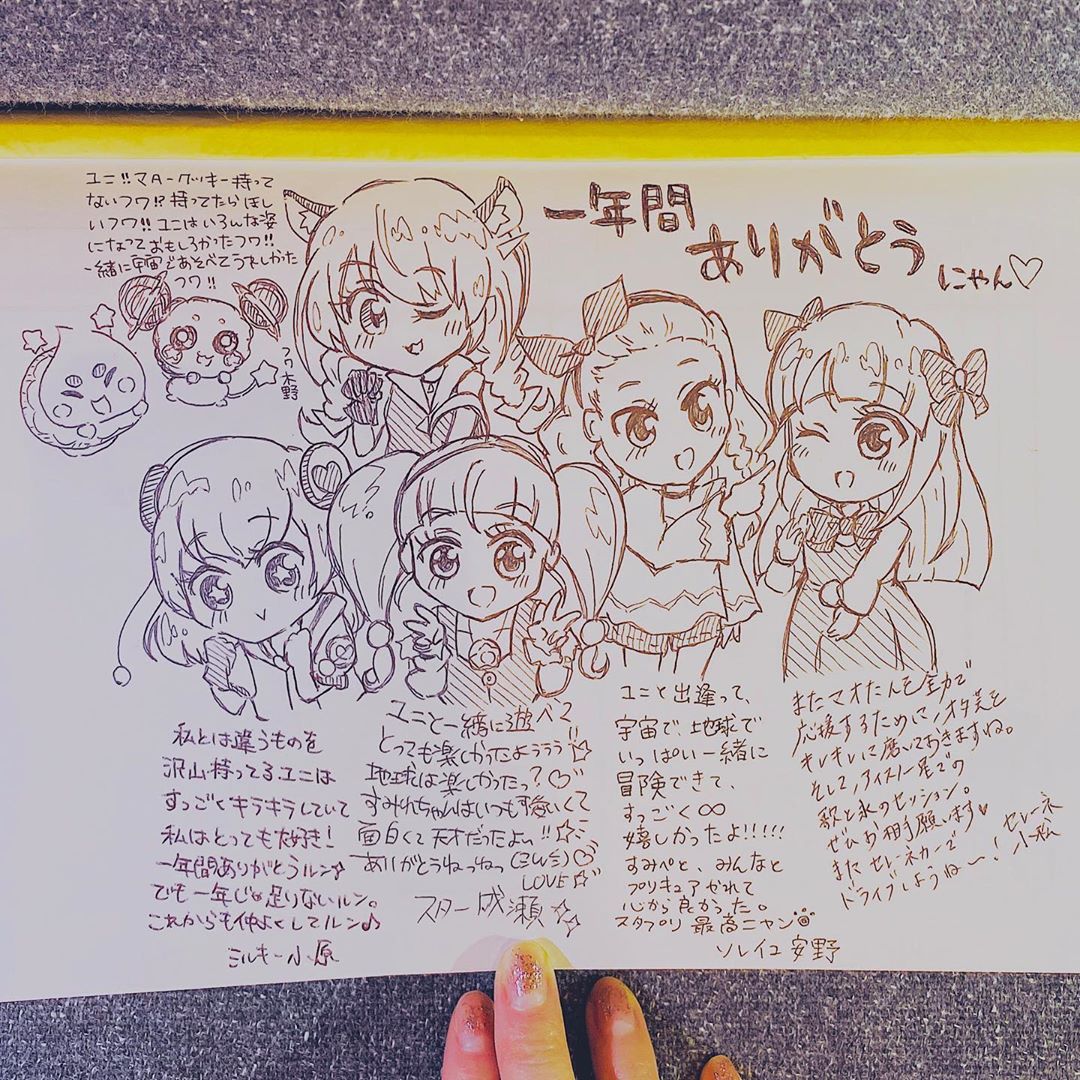 ユニ!!マA-クッキー持って
ないフワ!?持ってたらほし
いフワ!!ユニはいろんな姿
になっておもしろかったフワ!!
一緒に宇宙であそべてうれしかった
フワ!!
フワ木野
一年間
ありがとう
にゃん♡
私とは違うものを
沢山持ってる、ユニは
すっごくキラキラしていて
私はとっても大好き!
一年間ありがとうルン♪
でも一年じゃ足りないルン。
これからも仲よくしてルン♪
ミルキー小原
ユニと一緒に遊べて
とっても楽しかったようううう☆
地球は楽しかったっ?♡
すみれちゃんはいつも可愛くて
面白くて天才だったよぉ!!☆
ありがとうねっねっ(ミWミ)♡
LOVE☆
スター成瀬☆
ユニと出逢って、
宇宙で、地球で
いっぱい一緒に
冒険できて、
すっごく∞
嬉しかったよ!!!!!
すみぺと、みんなと
プリキュアがれて
心から良かった。
スタプリ最高ニャン
ソレイユ安野
またマオたんを全力で
応援するために、オタ芸を
キレキレに磨いておきますね。
そして、アイスノー星での
歌と氷のセッション。
ぜひお相手願います♥
また セレーネカーで
ドライブしようね〜!
セレーネ
小松